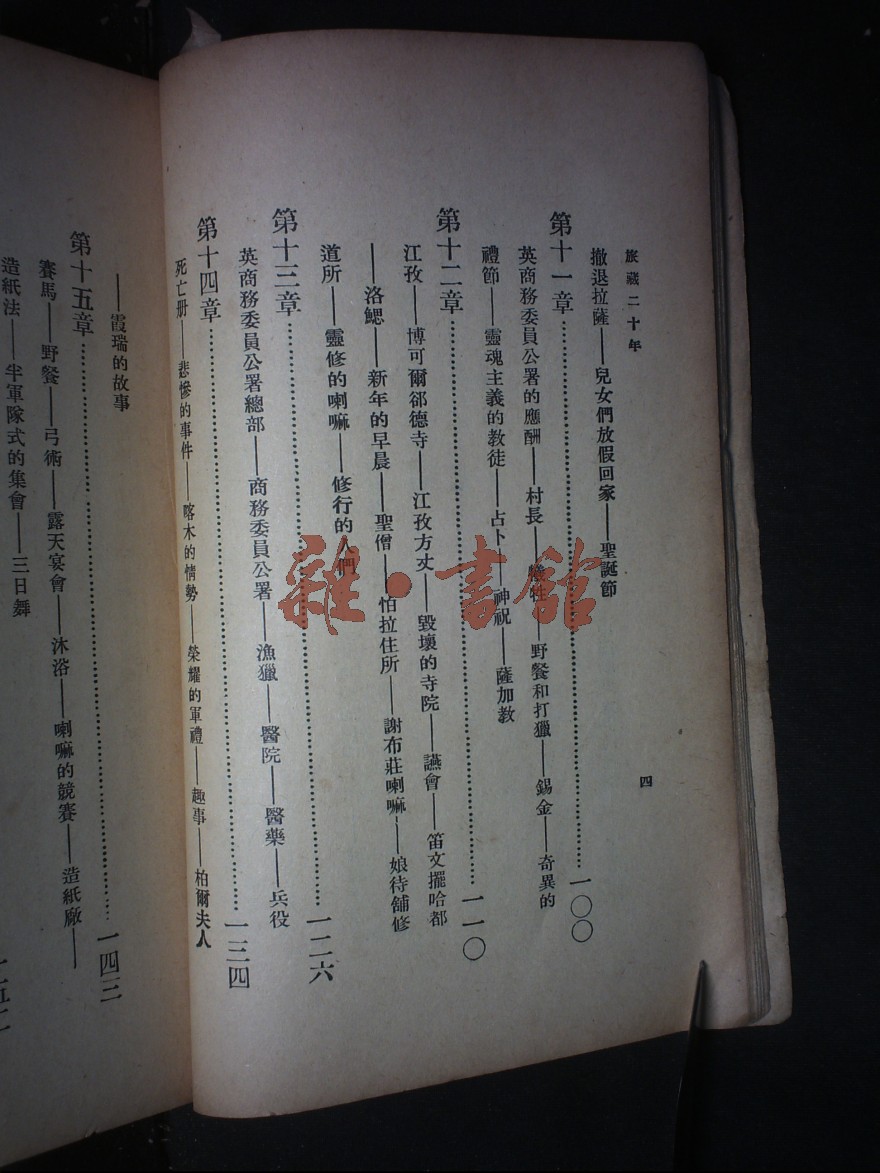 旅藏二十年
四
撤退拉薩——兒女們放假回家——聖誕節
第十一章……一〇〇
英商務委員公署的應酬——村長——犧牲——野餐和打獵——錫金——奇異的
禮節——靈魂主義的教徒——占卜——神祝——薩加教
第十二章……一一〇
江孜——博可爾郤德寺——江孜方丈——毀壞的寺院——讌會——笛文擺哈都
——洛鰓——新年的早晨——聖僧——怕拉住所——謝布莊喇嘛——娘待舖修
道所——靈修的喇嘛——修行的人們
第十三章……一二六
英商務委員公署總部——商務委員公署——漁獵——醫院——醫藥——兵役
第十四章……一三四
死亡册——悲慘的事件——喀木的情勢——榮耀的軍禮——趣事——柏爾夫人
——霞瑞的故事
第十五章……一四三
賽馬——野餐——弓術——露天宴會——沐浴——喇嘛的競賽——造紙廠——
造紙法——半軍隊式的集會——三日舞
雜·書館